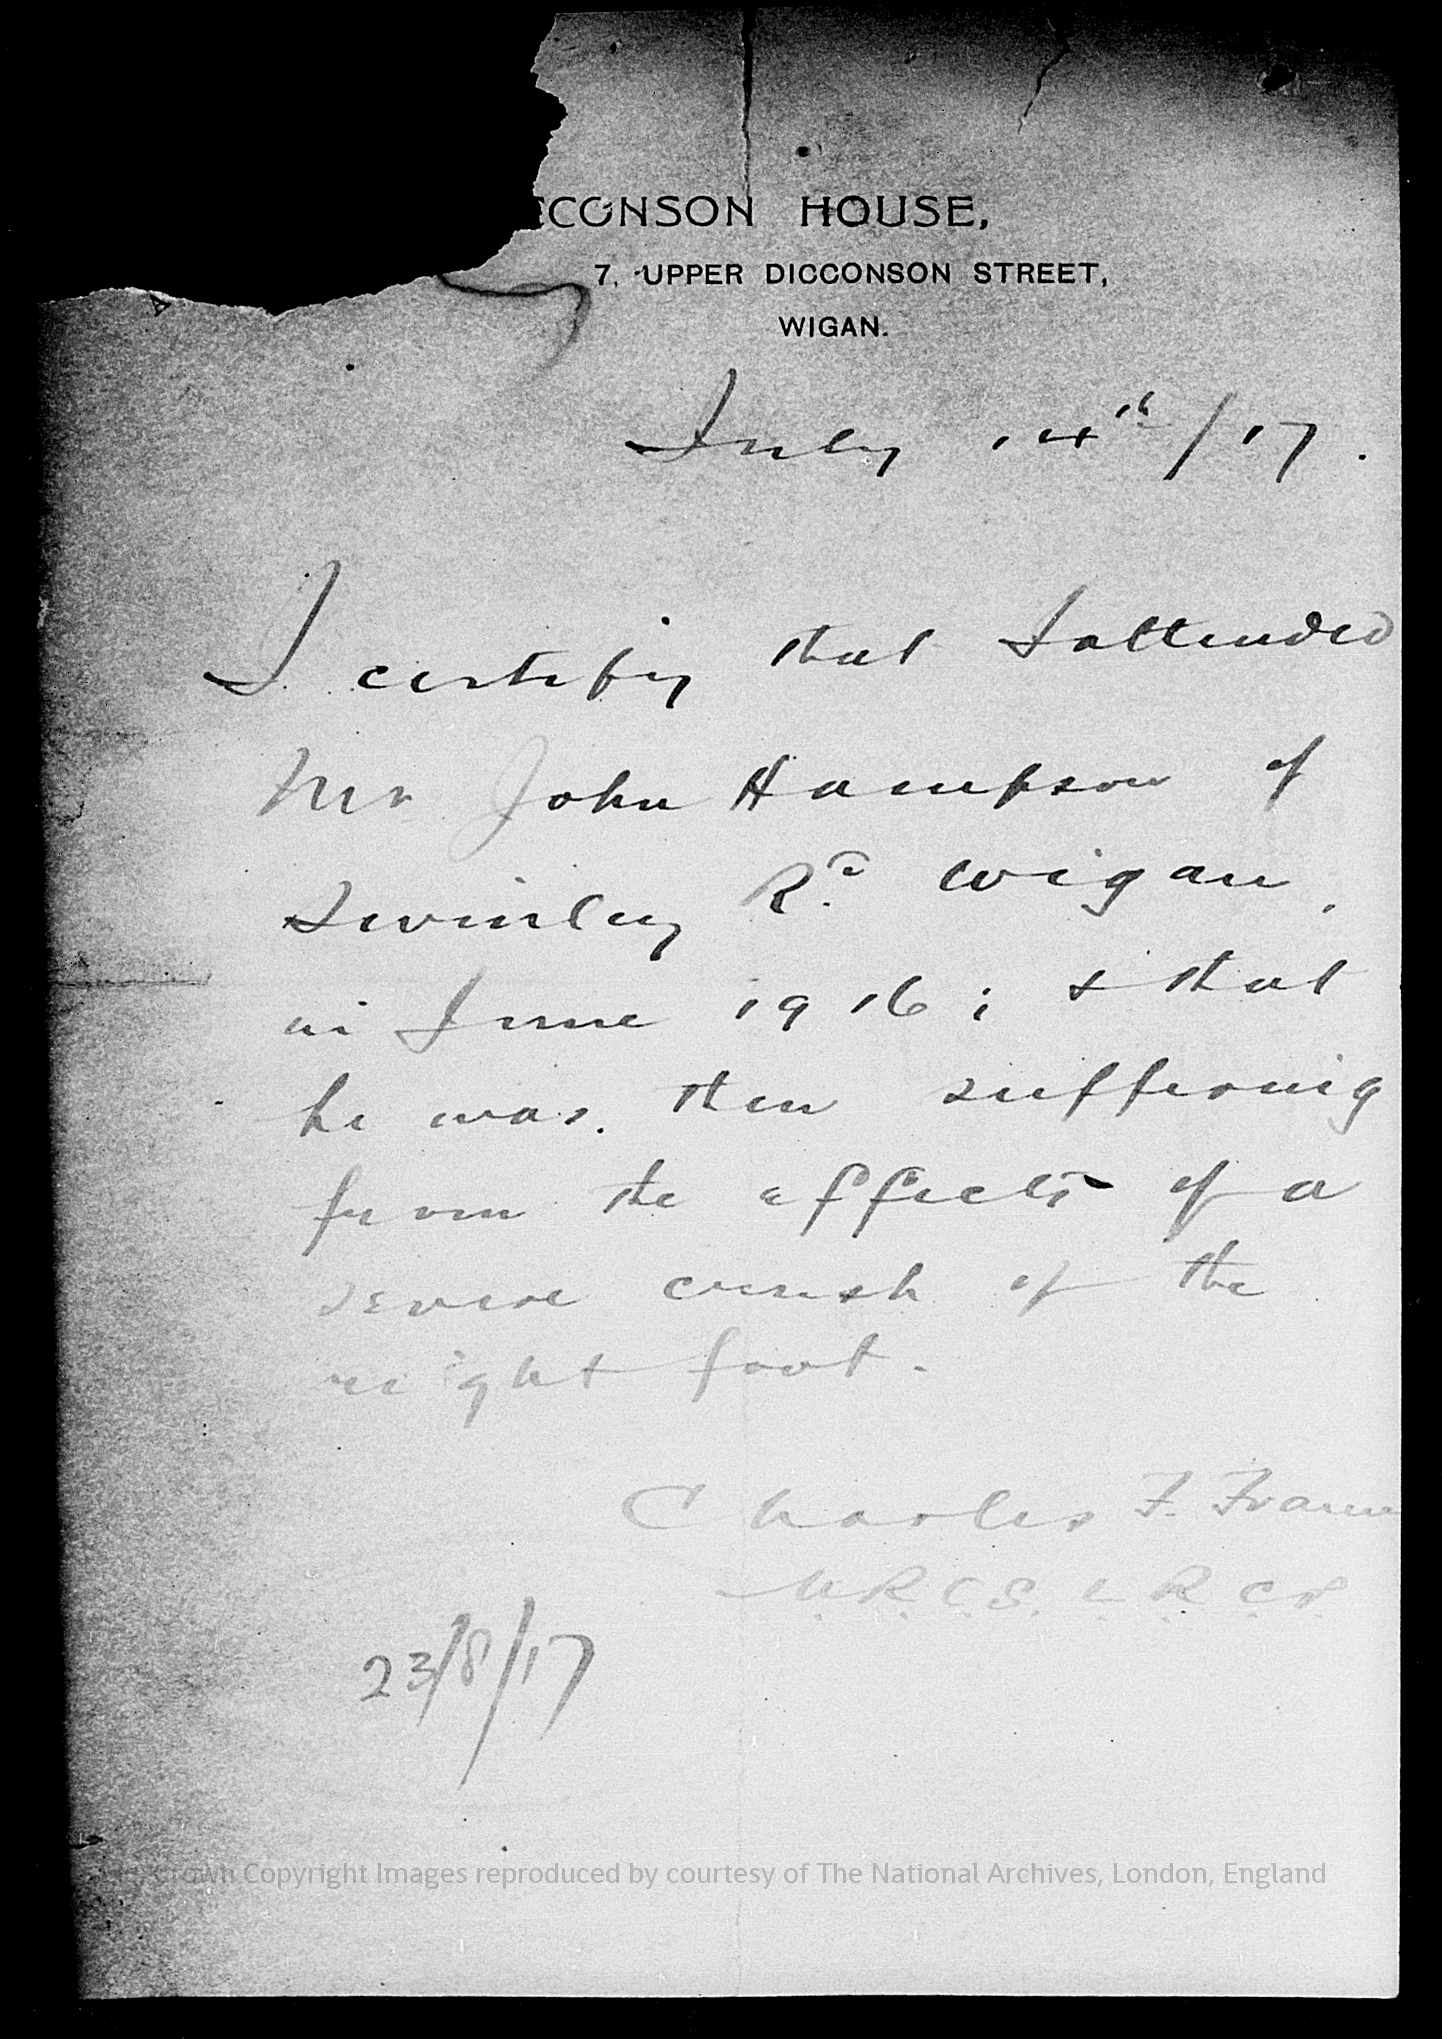 CCONSON HOUSE,
7, UPPER DICCONSON STREET,
WIGAN.
July 14th/17.
I certify that I attended
Mr John Hampson of
Swinley Rd. Wigan,
in June 1916; & that
he was then suffering
from the effects of a
severe crush of the
right foot.
Charles F.
M.R.C.S. L.R.C.P.
23/8/17
Crown Copyright Images reproduced by courtesy of The National Archives, London, England